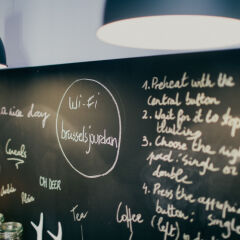 a nice day
Wi-Fi
brusselsjourdan
Cereals
OH DEER
Tea
Coffee
1. Preheat with the
central button
2. Wait for it to stop
3. Choose the right
pad: single or
double
4. Press the
button: single
(left)